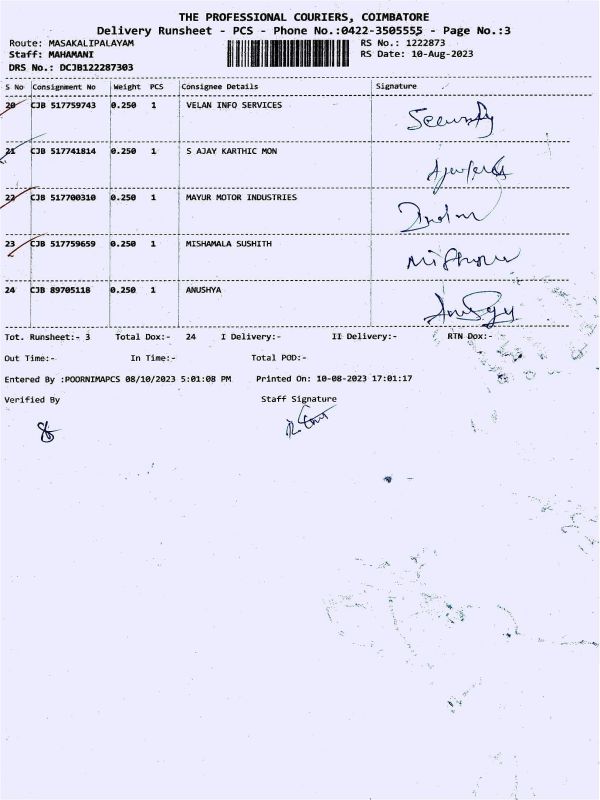 THE PROFESSIONAL COURIERS, COIMBATORE
Delivery Runsheet - PCS - Phone No.:0422-3505555 - Page No.:3
Route: MASAKALIPALAYAM RS No.: 1222873
Staff: MAHAMANI RS Date: 10-Aug-2023
DRS No.: DCJB122287303
S No Consignment No Weight PCS Consignee Details Signature
20 CJB 517759743 0.250 1 VELAN INFO SERVICES Security
21 CJB 517741814 0.250 1 S AJAY KARTHIC MON
22 CJB 517700310 0.250 1 MAYUR MOTOR INDUSTRIES
23 CJB 517759659 0.250 1 MISHAMALA SUSHITH
24 CJB 89705118 0.250 1 ANUSHYA
Tot. Runsheet:- 3 Total Dox:- 24 I Delivery:- II Delivery:- RTN Dox:-
Out Time:- In Time:- Total POD:-
Entered By :POORNIMAPCS 08/10/2023 5:01:08 PM Printed On: 10-08-2023 17:01:17
Verified By Staff Signature